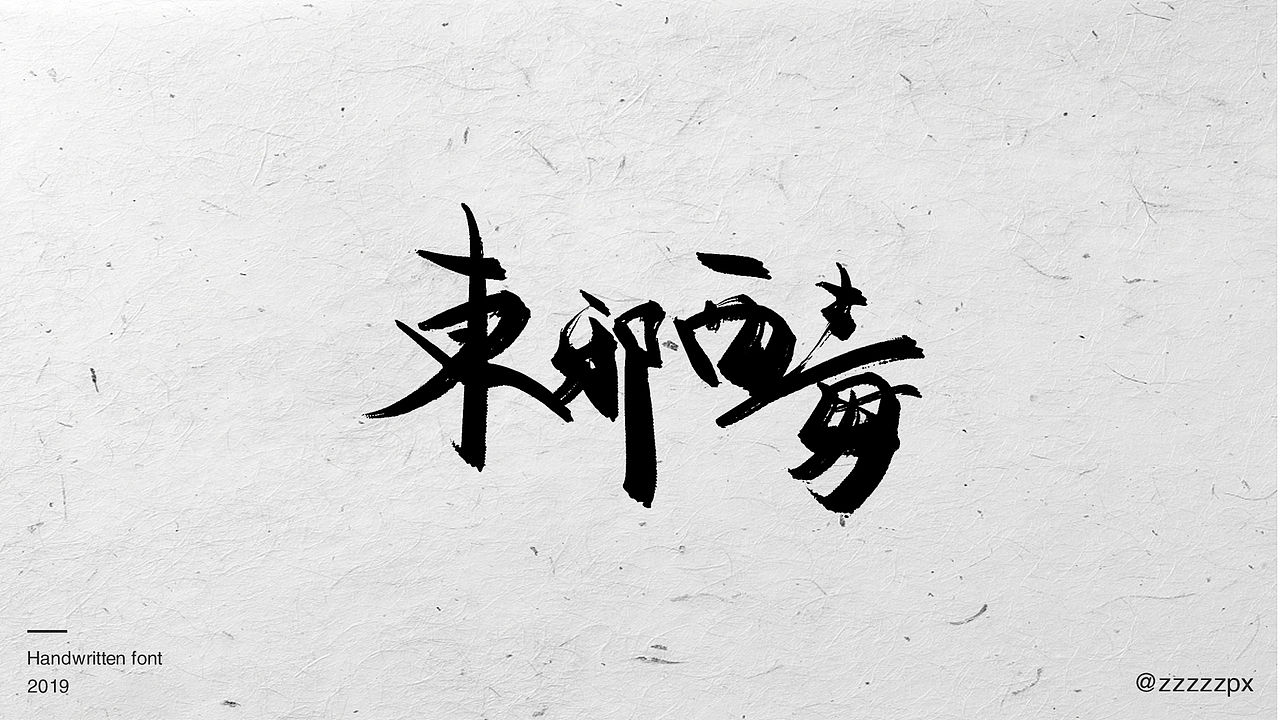 東邪西毒
Handwritten font
2019
@zzzzzpx